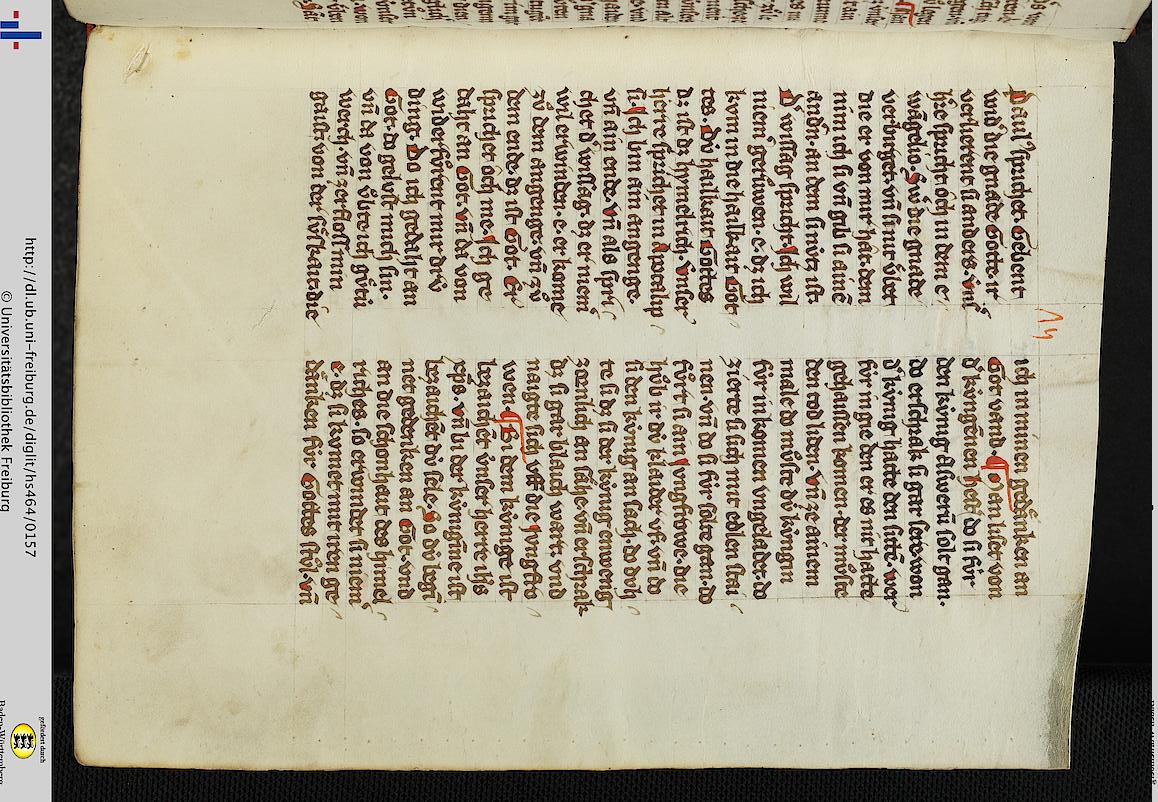 Paul' sprichet. Gebent
wirt die gnade Gottes ir
verlierent si anders. vns'
h're spricht och in dem e
wāgelio. Swˢ die gnade
verbirget. vn̄ si nit vˢber
die er von mir hat. dem
nim ich si vn̄ gib si ainē
andˢn. an dem si nvtz ist.
Dˢ wissag spricht. Ich wil
niemˢ gerůwen. e. dz ich
kvm in die hailkait Got
tes. Dv̓ hailkait Gottes
dz ist dz hymelrich. Vnser
herre sprichet in Apocalip
si. Ich bin ain angenge
vn̄ ain ende. vn̄ als spri
chet dˢ wissag. dz er niemˢ
wil erwinden. e. er kome
zů dem angenge vn̄ zů
dem ende. dz ist Got. Er
sprichet och me. Ich ge
daht an Got. vn̄ da von
widerfůrent mir drv̓
ding. Do ich gedaht an
Got. do gelvst mich sin.
vn̄ da von v̓bte ich gůtv̓
werch. vn̄ zerflos min
gaist. von der sv̓skait. die
ich in minen gedēnken an
Got vand. ¶ Man liset von
dˢ kinginen Hestˢ do si fv̓r
den kv̓nig Aswerū solt gan.
do erschrak si gar sere. won
dˢ kv̓nig hatte den sitte. wer
fv̓r in gie den er es nit hatte
gehaissen komen. der mv̊ste
den tod liden. Vn̄ ze ainem
male do mv̊ste dv̓ kv̓ngin
fv̓r in komen vngeladet. do
zierte si sich mit edlen stai
nen. vn̄ do si fv̓r solte gan. do
fůrt si ain Jvngfrowe. die
hůb ir dv̓ klaider vf. vn̄ do
si den kv̓nig an sach. do dvh
te si dz si der kv̓nig ein wenig
zornlich an såhe. vn̄ erschrak
dz si gar blaich wart. vnd
naigte sich vff die Jvngfro
wen. ¶ Bi dem kv̓nige ist
bezaichēt v̓nser herre ihs
xps. vn̄ bi der kv̓nginne ist
bezaichēt dv̓ sele. So dv̓ begī
net gedenken an Got. vnd
an die schonhait des himel
riches. so erwindet si niemˢ
e. dz si kvmet mit iren ge
dänken fv̓r Gottes stůl. vn̄
http://dl.ub.uni-freiburg.de/diglit/hs464/0157
© Universitätsbibliothek Freiburg
gefördert durch
Baden-Württemberg